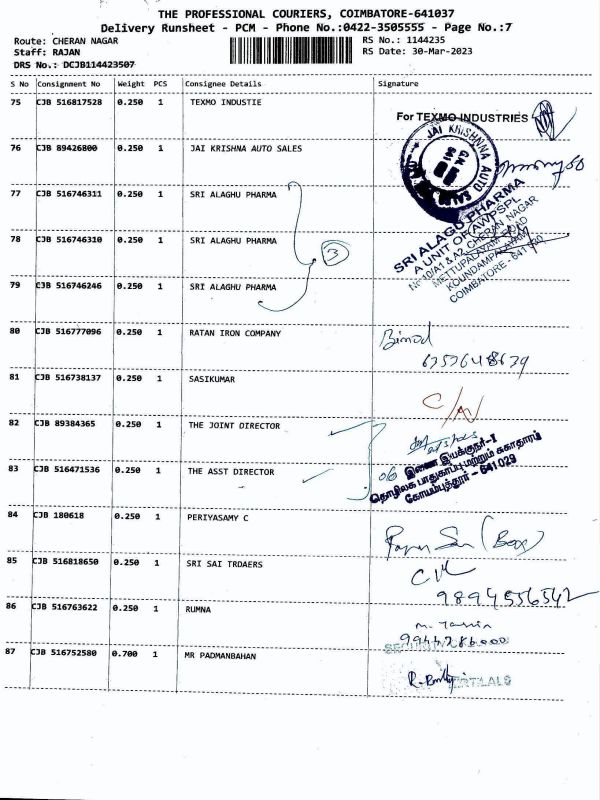 THE PROFESSIONAL COURIERS, COIMBATORE-641037
Delivery Runsheet - PCM - Phone No.:0422-3505555 - Page No.:7
Route: CHERAN NAGAR RS No.: 1144235
Staff: RAJAN RS Date: 30-Mar-2023
DRS No.: DCJB114423507
S No Consignment No Weight PCS Consignee Details Signature
75 CJB 516817528 0.250 1 TEXMO INDUSTIE
For TEXMO INDUSTRIES
76 CJB 89426800 0.250 1 JAI KRISHNA AUTO SALES
JAI KRISHNA AUTO SALES
77 CJB 516746311 0.250 1 SRI ALAGHU PHARMA
78 CJB 516746310 0.250 1 SRI ALAGHU PHARMA
3
SRI ALAGU PHARMA
A UNIT OF AWPSPL
No 10/A1 & A2, CHERAN NAGAR
METTUPALAYAM ROAD
KOUNDAMPALAYAM
COIMBATORE - 641 030
79 CJB 516746246 0.250 1 SRI ALAGHU PHARMA
80 CJB 516777096 0.250 1 RATAN IRON COMPANY
Binod
81 CJB 516738137 0.250 1 SASIKUMAR
C/N
82 CJB 89384365 0.250 1 THE JOINT DIRECTOR
83 CJB 516471536 0.250 1 THE ASST DIRECTOR
06 இணை இயக்குநர்-I
தொழிலக பாதுகாப்பு மற்றும் சுகாதாரம்
கோயம்புத்தூர் - 641 029
84 CJB 180618 0.250 1 PERIYASAMY C
(Box)
85 CJB 516818650 0.250 1 SRI SAI TRDAERS
9894556542
86 CJB 516763622 0.250 1 RUMNA
9944286000
87 CJB 516752580 0.700 1 MR PADMANBAHAN